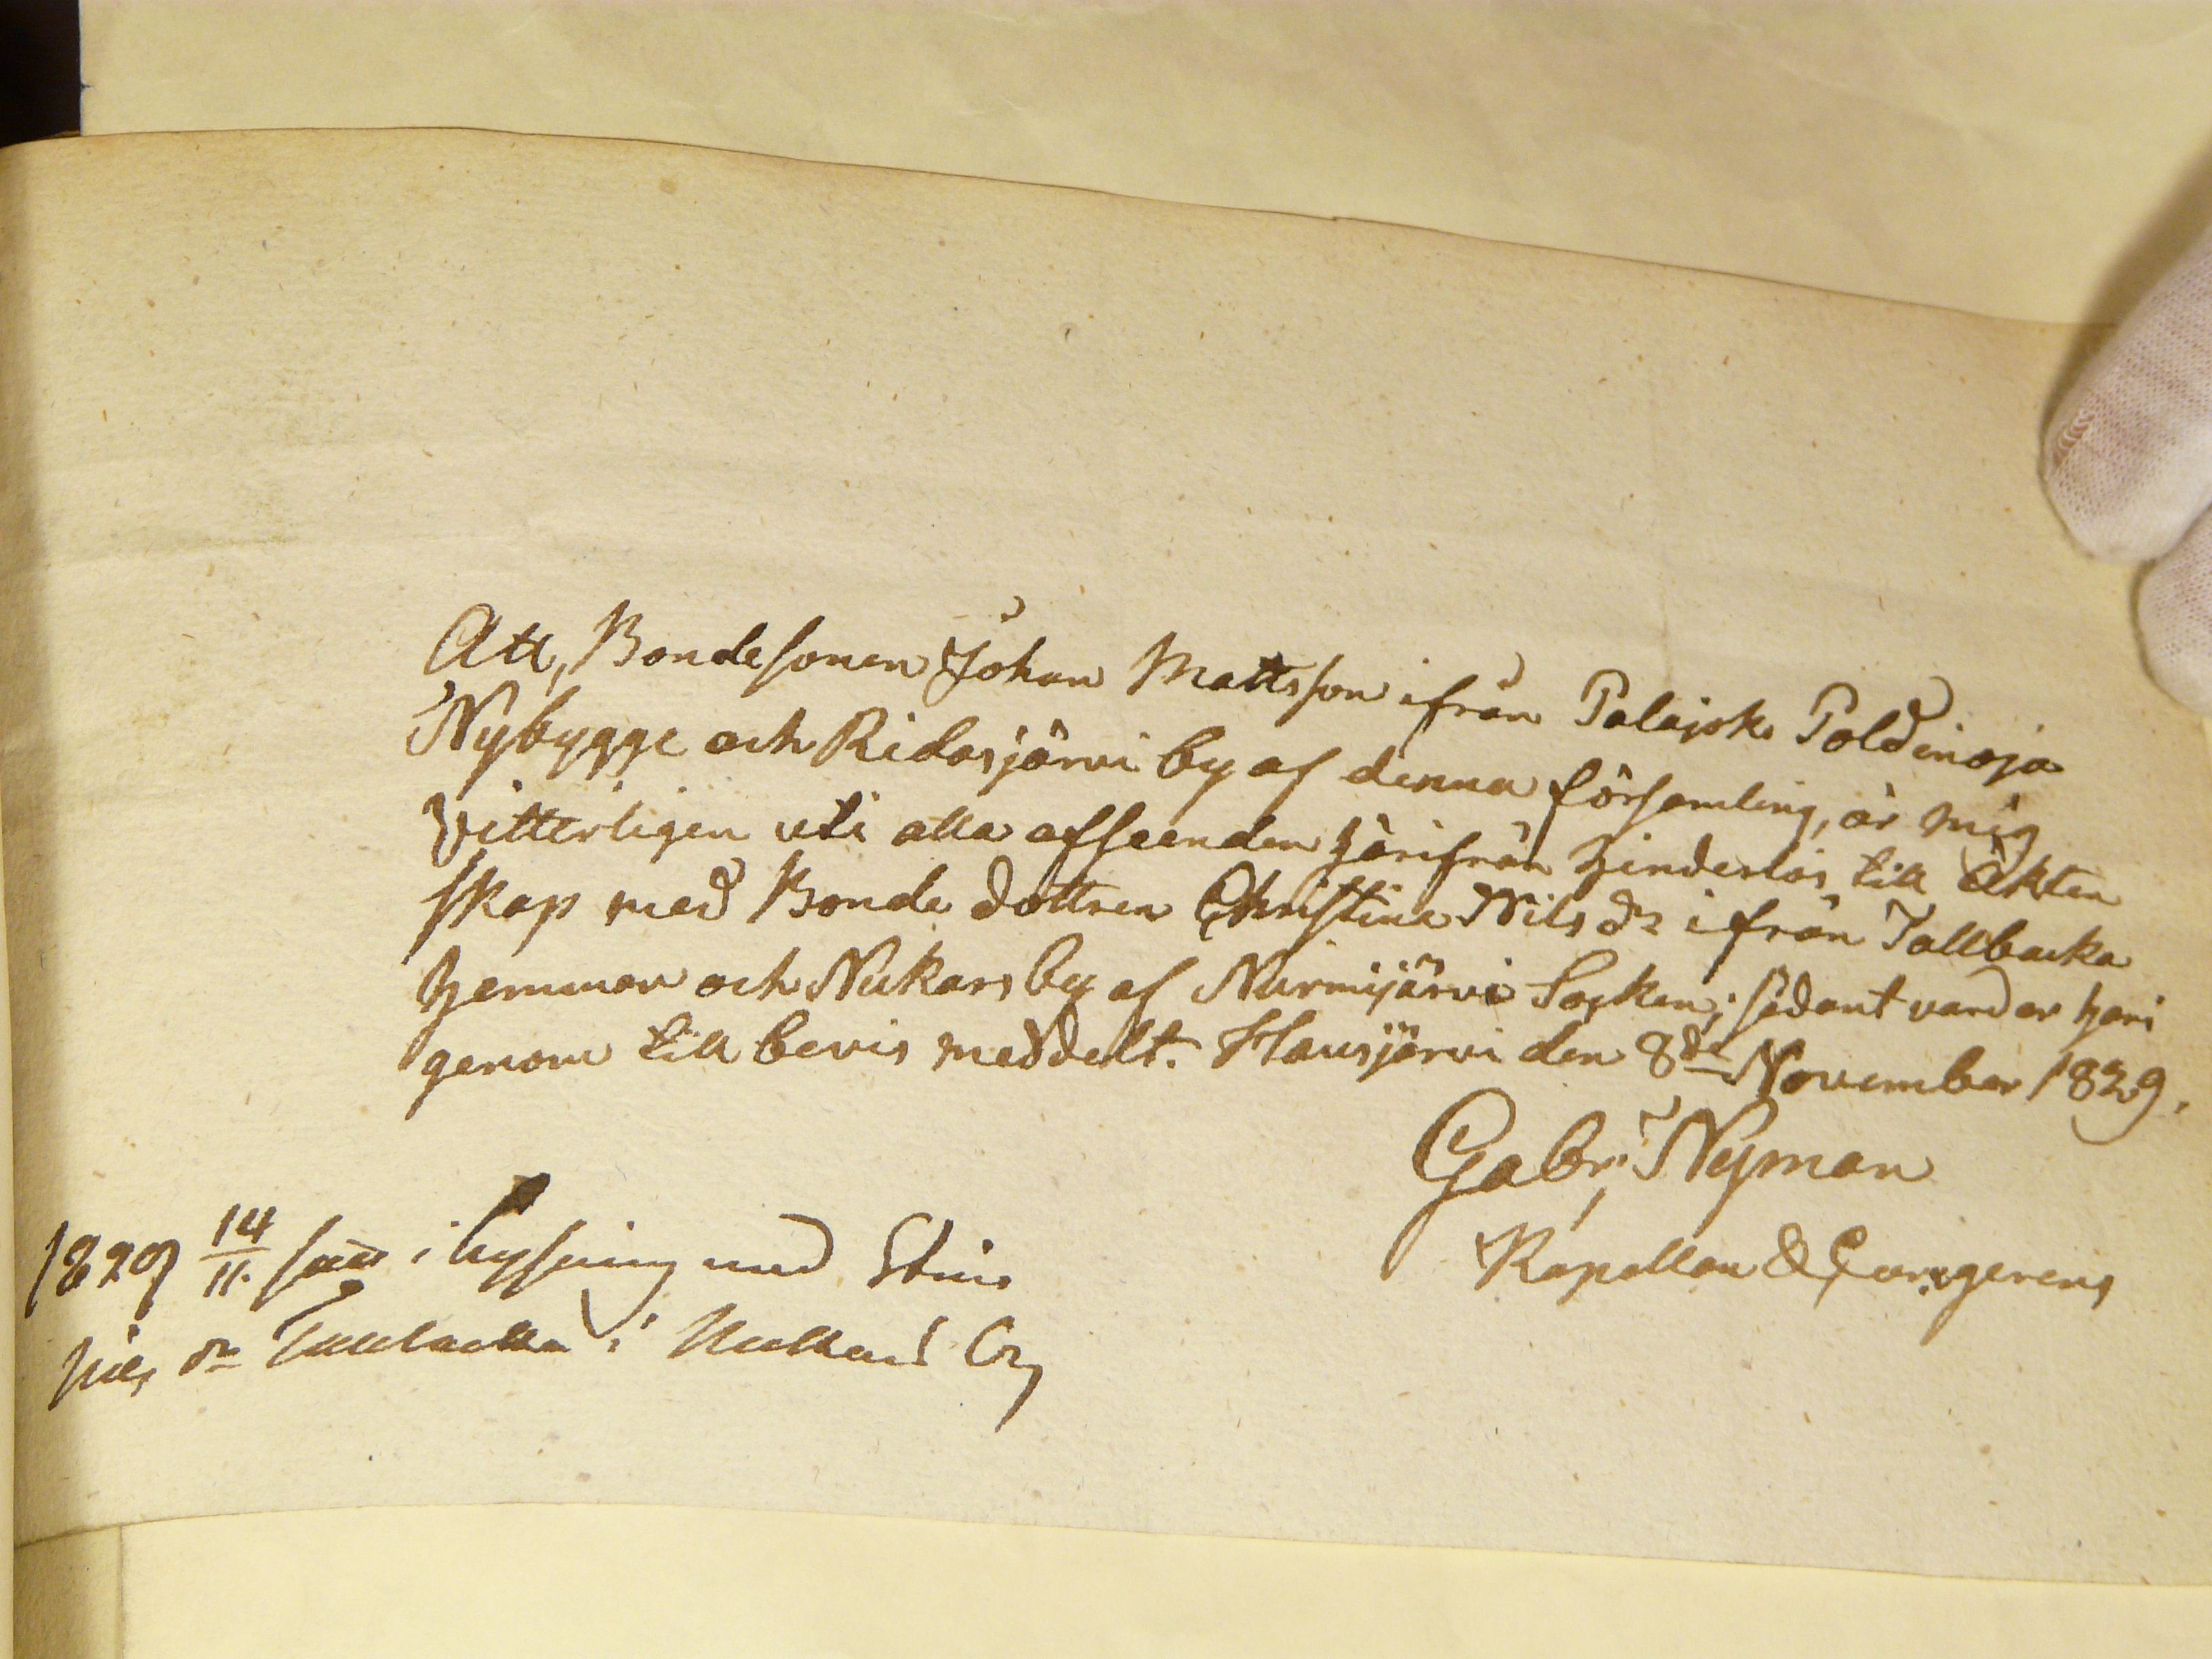 Att, Bondesonen Johan Mattsson ifrån Palajok Poldinoja
Nybygge och Ridasjärvi by af denna församling, är mig
vitterligen uti alla afseenden härifrån hinderlös till Äkten
skap med Bonde dottren Christina Nils dr ifrån Tallbacka
hemman och Nukars by af Nurmijärvi Socken; sådant varder häri
genom till bevis meddelt. Hausjärvi den 8de November 1829.
Gabr: Nyman
Kapellan & Curagerens
1829 14/11 i lysning med Stina
Nils dr Tallbacka i Nukari by